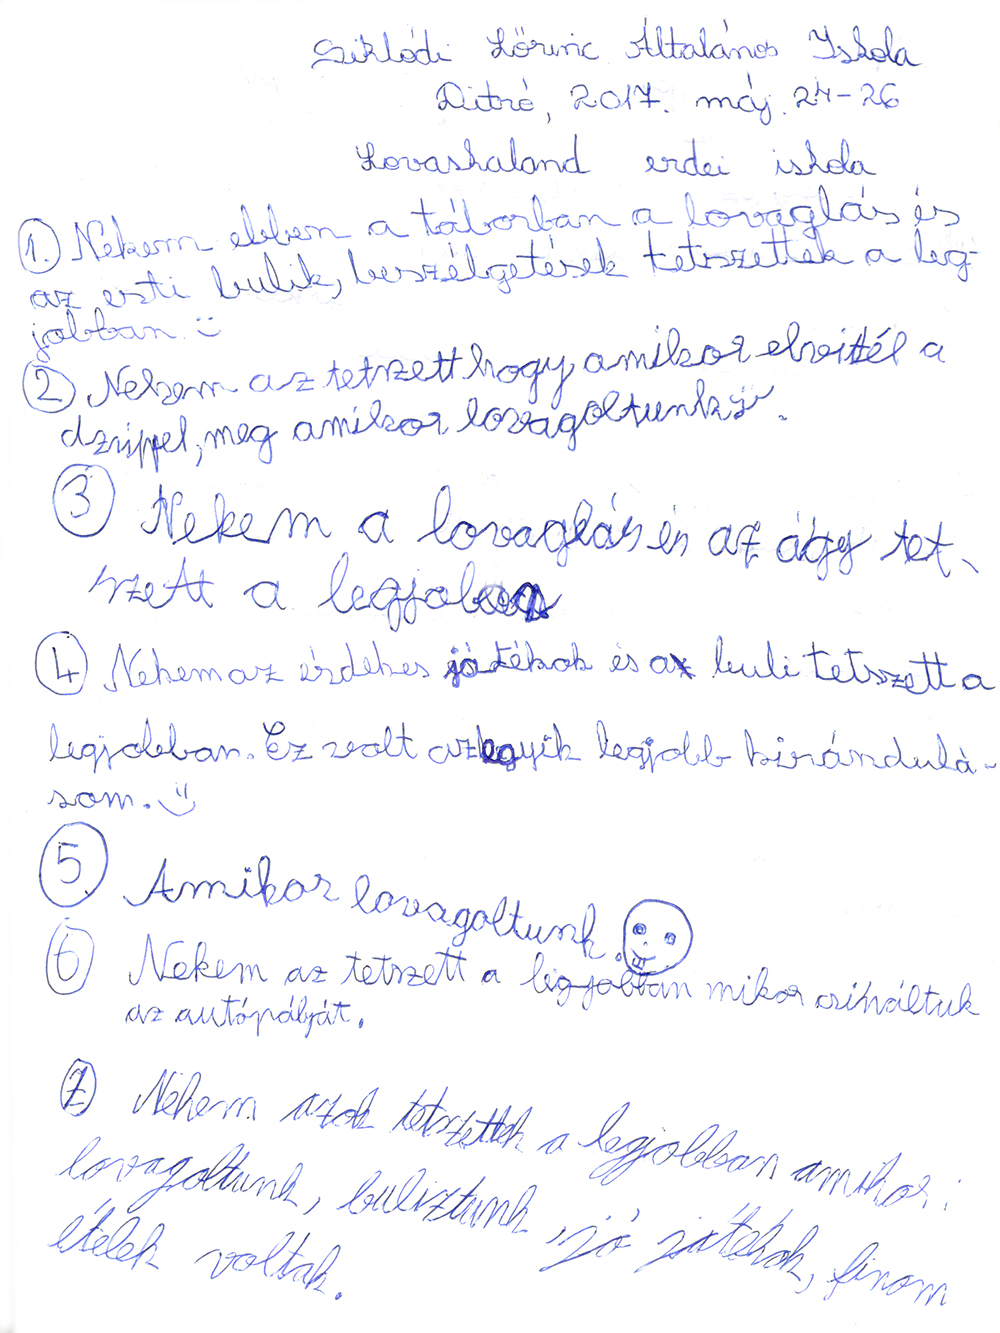 Siklódi Lőrinc Általános Iskola
Ditró, 2017. máj. 24-26
Lovaskaland erdei iskola
1. Nekem ebben a táborban a lovaglás és
az esti bulik, beszélgetések tetszettek a leg-
jobban
2 Nekem az tetszett hogy, amikor elvittél a
dzsippel, meg amikor lovagoltunk
3 Nekem a lovaglás és az ágy tet-
szett a legjoban
4 Nekem az érdekes játékok és a buli tetszett a
legjobban. Ez volt az egyik legjobb kirándulá-
som.
5 Amikor lovagoltunk.
6 Nekem az tetszett a legjobban mikor csináltuk
az autópályát.
7 Nekem azok tetszettek a legjobban amikor:
lovagoltunk, buliztunk, jó játékok, finom
ételek voltak.